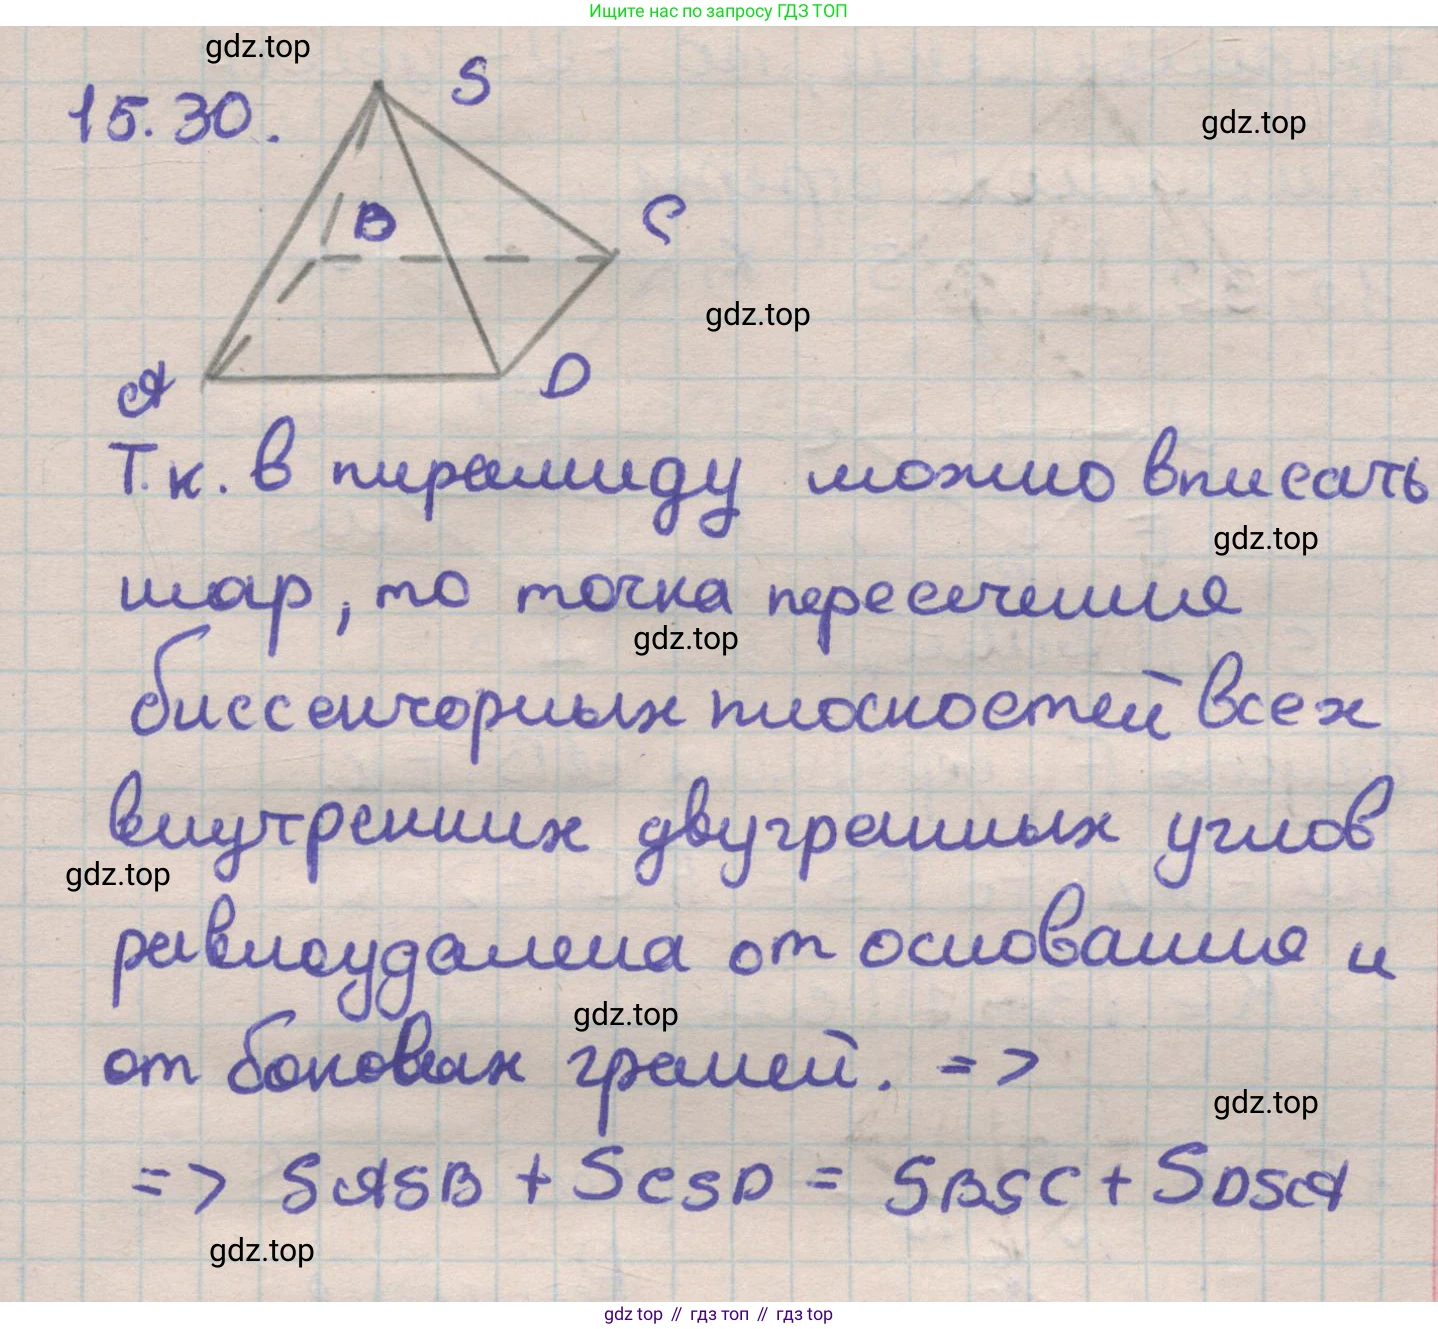 Ищите нас по запросу ГДЗ ТОП
gdz.top
15.30.
S
gdz.top
B
C
gdz.top
A
D
Т.к. в пирамиду можно вписать
gdz.top
шар, то точка пересечения
gdz.top
биссекторных плоскостей всех
внутренних двугранных углов
gdz.top
равноудалена от основания и
gdz.top
от боковых граней. =>
gdz.top
=> SASB + SCSD = SBSC + SDSA
gdz.top
gdz top // гдз топ // гдз top